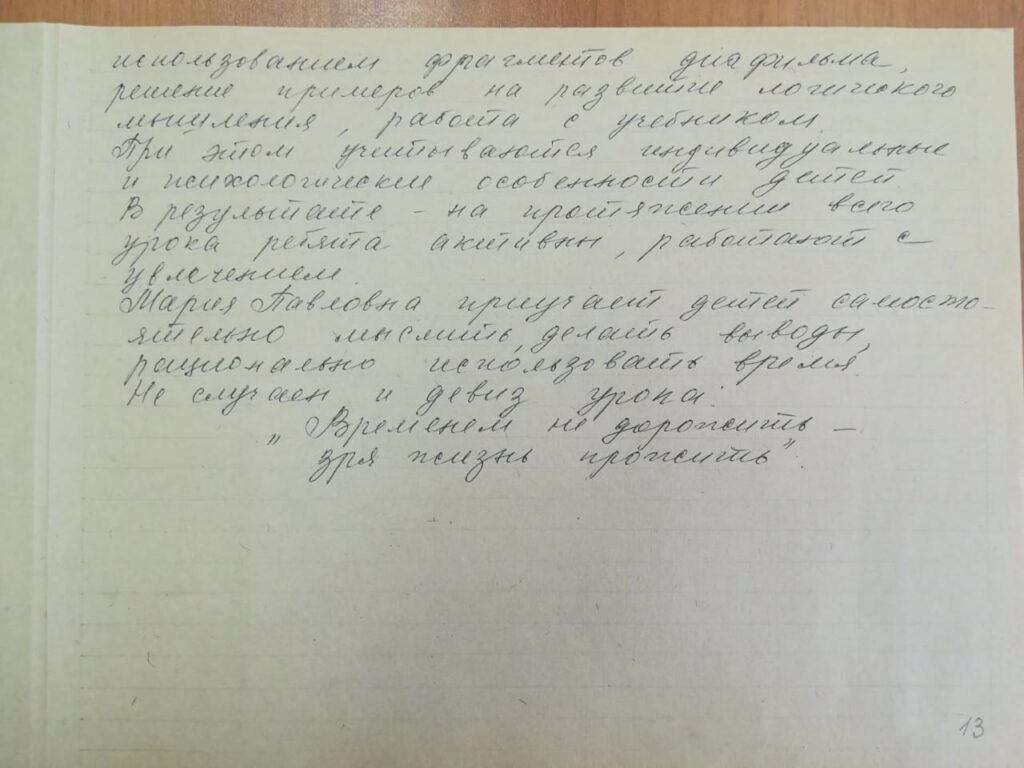 использованием фрагментов диафильма,
решение примеров на развитие логического
мышления, работа с учебником.
При этом учитываются индивидуальные
и психологические особенности детей.
В результате - на протяжении всего
урока ребята активны, работают с
увлечением.
Мария Павловна приучает детей самосто-
ятельно мыслить, делать выводы,
рационально использовать время.
Не случаен и девиз урока.
„Временем не дорожить –
зря жизнь прожить".
13